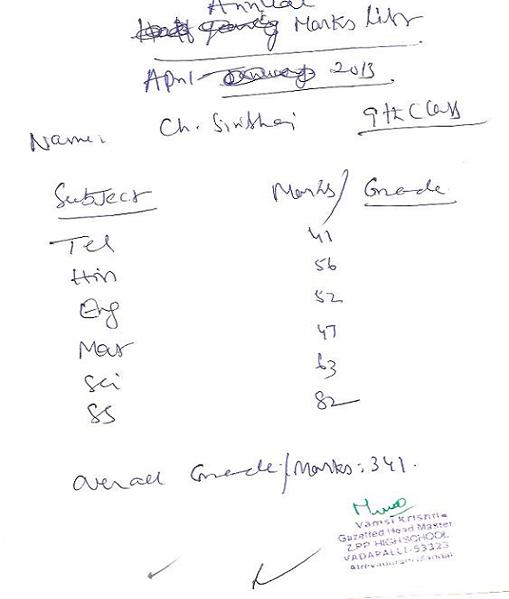 Annual
Marks List
April 2013
Name: Ch. Sirisha 9th Class
Subject Marks/Grade
Tel 41
Hin 56
Eng 52
Mat 47
Sci 63
SS 82
Overall Grade/Marks: 341.
Vamsi Krishna
Gazetted Head Master
Z.PP HIGH SCHOOL
VADAPALLI-53323